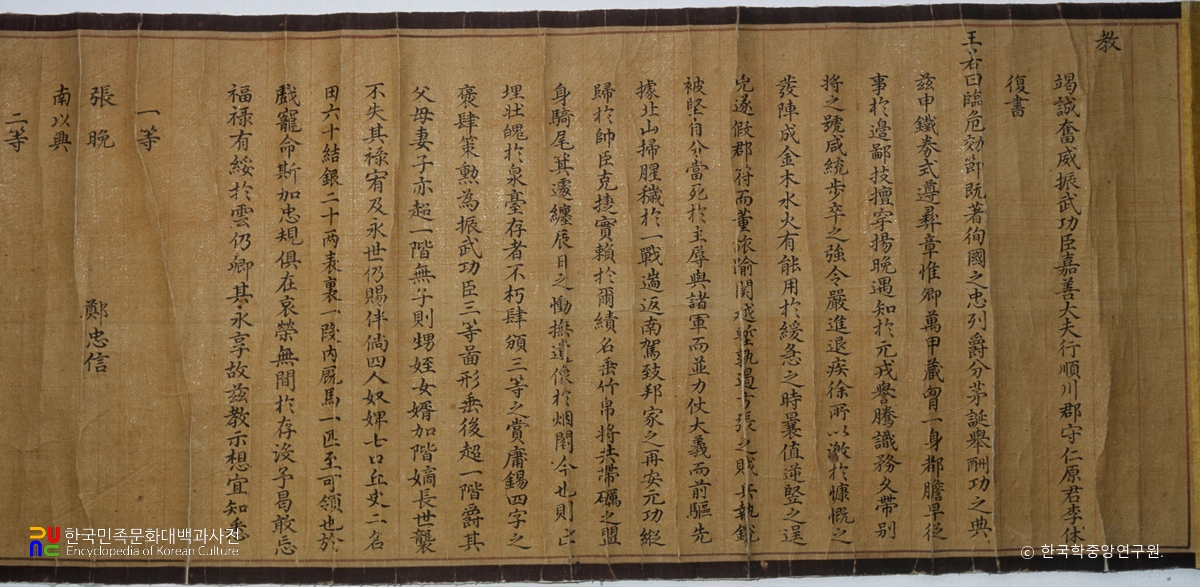 教
竭誠奮威振武功臣嘉善大夫行順川郡守仁原君李休
復書
王若曰臨危効節旣著徇國之忠列爵分茅誕擧酬功之典
玆申鐵券式遵彛章惟卿萬甲藏胷一身都膽早從
事於邊鄙技擅穿揚晩遇知於元戎譽騰識務久帶別
將之號咸統步卒之強令嚴進退疾徐所以激於慷慨之
發陣成金木水火有能用於緩急之時曩値逆竪之逞
兇遂假郡符而董旅踰関越壑執遏方張之賊兵執銳
被堅自分當死於主辱與諸軍而並力仗大義而前驅先
據北山掃腥穢於一戰遄返南駕致邦家之再安元功縱
歸於帥臣克捷實賴於爾績名垂竹帛將共帶礪之盟
身騎尾箕遽纏辰日之慟撫遺像於烟閣今也則亡
埋壯魄於泉臺存者不朽肆頒三等之賞庸錫四字之
褒肆策勳爲振武功臣三等啚形垂後超一階爵其
父母妻子亦超一階無子則甥姪女婿加階嫡長世襲
不失其祿宥及永世仍賜伴倘四人奴婢七口丘史二名
田六十結銀二十兩表裏一段內廐馬一匹至可領也於
戱寵命斯加忠規俱在哀榮無間於存沒予曷敢忘
福祿有綏於雲仍卿其永享故玆敎示想宜知悉
一等
張晚 鄭忠信
南以興
二等
한국민족문화대백과사전
Encyclopedia of Korean Culture
© 한국학중앙연구원.